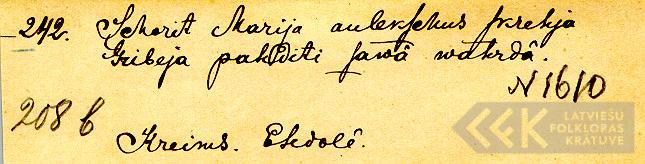 242. Schorit Marija aulekschus skrehja
Gribeja pahrditi sawâ wahrdâ.
N 1610
208 b
Kreims. Ehdolê.
LATVIEŠU
FOLKLORAS
KRĀTUVE